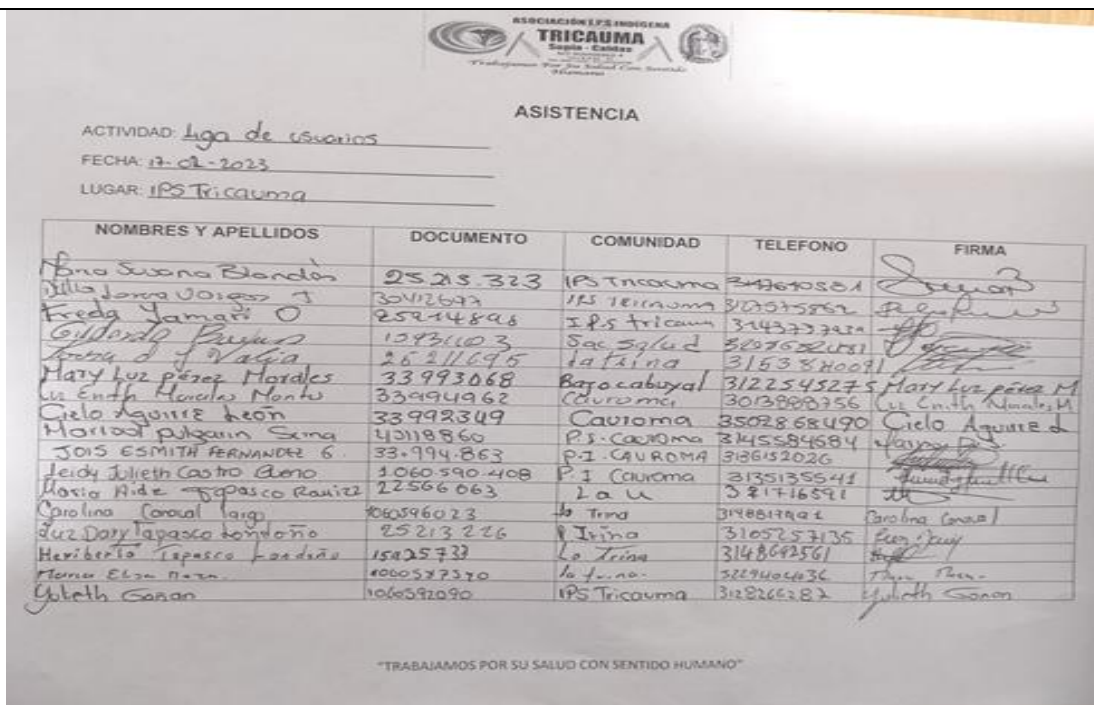 ASOCIACIÓN I.P.S INDIGENA
TRICAUMA
Supia - Caldas
Trabajamos Por Su Salud Con Sentido
Humano
ASISTENCIA
ACTIVIDAD: Liga de usuarios
FECHA: 17-02-2023
LUGAR: IPS Tricauma
NOMBRES Y APELLIDOS DOCUMENTO COMUNIDAD TELEFONO FIRMA
Susana Blandón 25.215.323 IPS Tricauma
Vargas J IPS Tricauma
Freda Yamari O 25914898 I.P.S tricaum
Gildardo 15931103 Sac Salud
26211695 la trina
Mary Luz pérez Morales 33993068 Bajo cabuyal 3122545275 Mary Luz pérez M
Luz Enith Morales 33994962 Cauroma 3013888756 Luz Enith Morales M
Cielo Aguirre León 33992349 Cauroma 3502868490 Cielo Aguirre L
pulgarin P.S. Cauroma 3145584684
JOIS ESMITH FERNANDEZ G. 33.994.863 P.I. CAUROMA 3136152026
Leidy Julieth Castro Bueno 1.060.590.408 P.I Cauroma 3135135541
Maria Aide Tapasco Ramirez 22566063
Carolina 1060596023 la Trina Carolina
Luz Dary Tapasco Londoño 25213226 Trina 3105257135 Luz Dary
Heriberto Tapasco Londoño 15925733 La Trina 3148692561
Maria Elsa 1060587570 la trina
Yulieth Gañan 1060592090 IPS Tricauma 3128266282 Yulieth Gañan
"TRABAJAMOS POR SU SALUD CON SENTIDO HUMANO"